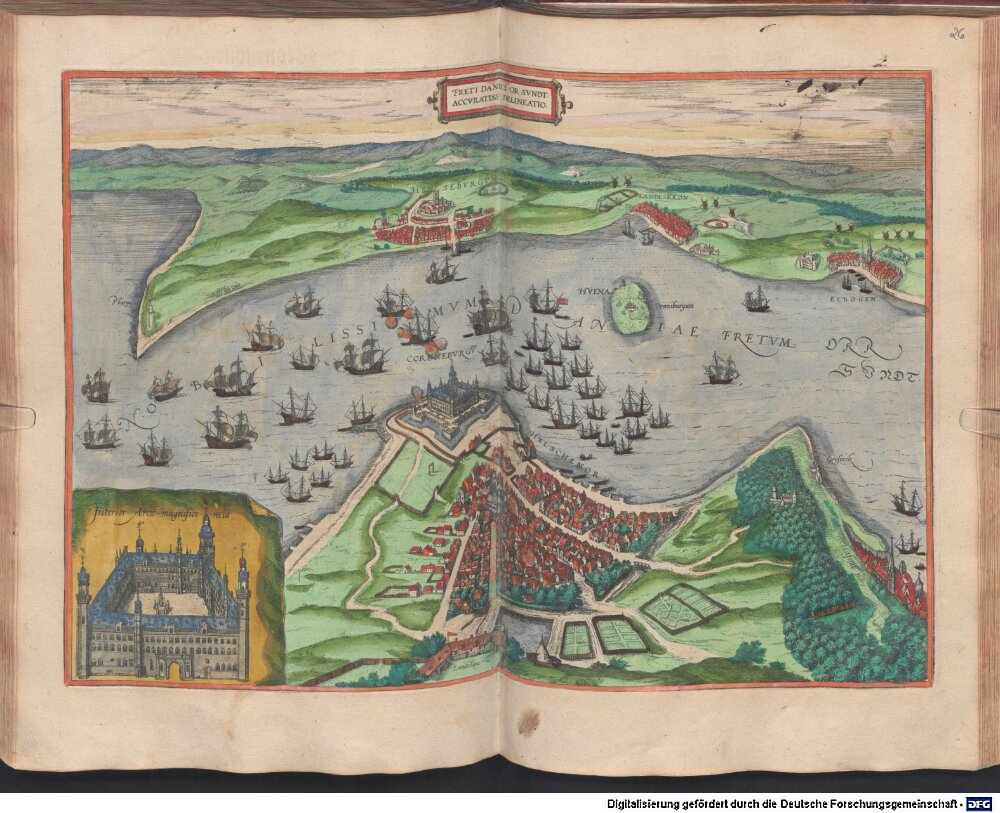 26
FRETI DANICI OR SVNDT
ACCVRATISS DELINEATIO.
LANDESKRON
ELBOGEN
HVENA
Vraniburgum
NOBILISSIMVM DANIAE FRETVM
ORR
SVNDT
CORONEBVRGV
HELSCHENOR
Interior Arcis magnificentia
Digitalisierung gefördert durch die Deutsche Forschungsgemeinschaft - DFG